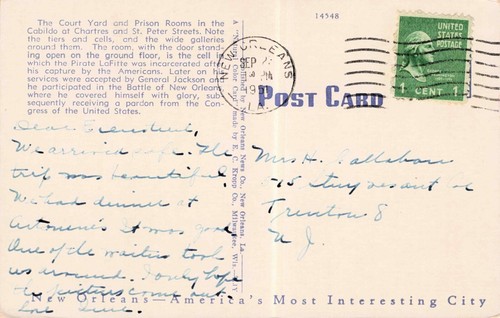 The Court Yard and Prison Rooms in the
Cabildo at Chartres and St. Peter Streets. Note
the tiers and cells, and the wide galleries
around them. The room, with the door stand-
ing open on the ground floor, is the cell in
which the Pirate LaFitte was incarcerated after
his capture by the Americans. Later on his
services were accepted by General Jackson and
he participated in the Battle of New Orleans
where he covered himself with glory, sub-
sequently receiving a pardon from the Con-
gress of the United States.
14548
NEW ORLEANS
SEP
PM
1951
LA.
UNITED
STATES
POSTAGE
1 CENT 1
POST CARD
New Orleans News Co., New Orleans, La.
made by E. C. Kropp Co., Milwaukee, Wis.
Dear
We arrived safe. The
trip was beautiful.
We had dinner at
Antoine's. It was good
One of the waiters took
us around. I only hope
pictures come out.
Love
Mrs H. Callahan
Stuyvesant
Trenton 8
N. J.
New Orleans—America's Most Interesting City